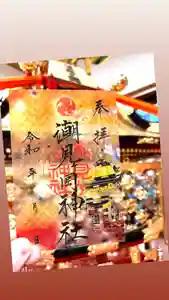 奉拝
潮見岡神社
令和 年 月 日